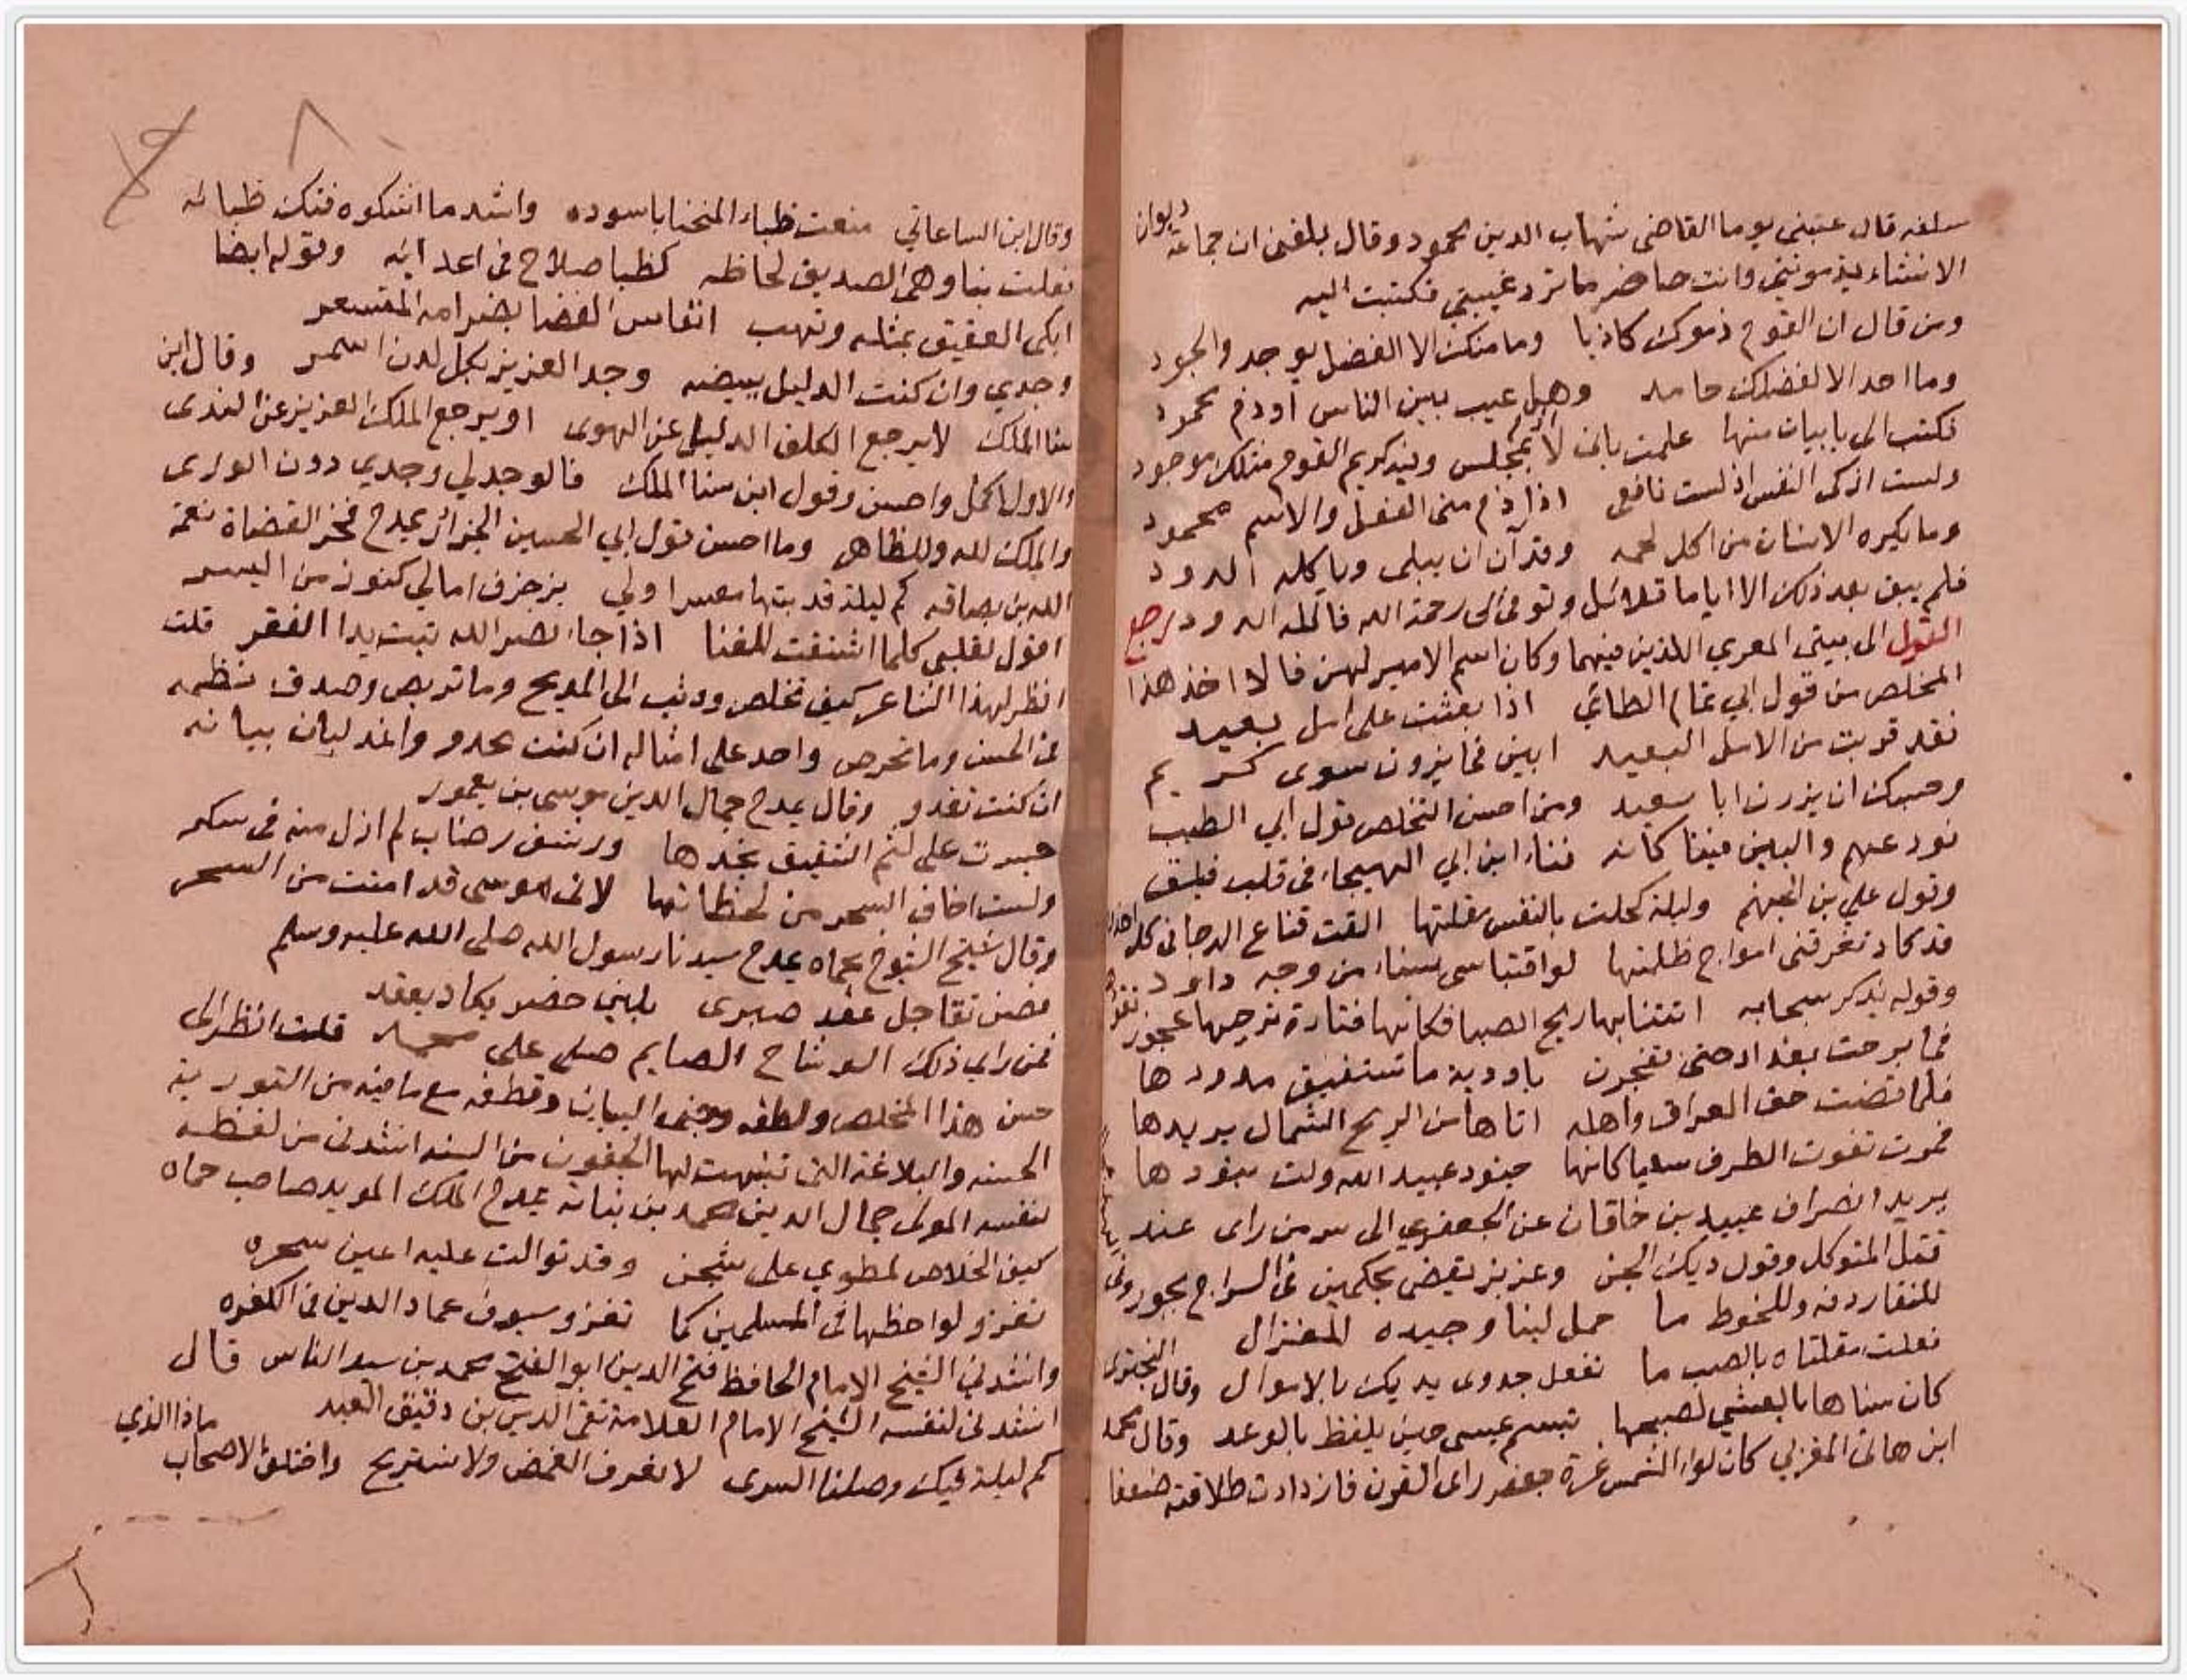 سلفه قال عتبني يوما القاضي شهاب الدين محمود وقال بلغني ان جماعة ديوان
الانشاء يذمونني وانت حاضر ما ترد غيبتي فكتبت اليه
ومن قال ان القوم ذموك كاذبا وما منك الا الفضل يوجد والجود
وما احد الا لفضلك حامد وهل عيب بين الناس او ذم محمود
فكتب الي بابيات منها علمت باني لم اذم بمجلس وفيه كريم القوم مثلك موجود
ولست ازكي النفس اذ ليست نافعي اذا ذم مني الفعل والاسم محمود
وما يكره الانسان من اكل لحمه وقد آن ان يبلى وياكله الدود
فلم يبق بعد ذلك الا اياما قلائل وتوفي الى رحمة الله فاكله الدود رجع
القول الى بيتي المعري اللذين فيهما وكان اسم الامير لهن فالا اخذ هذا
المخلص من قول ابي تمام الطائي اذا بعثت على امل بعيد
فقد قربت من الامل البعيد ابين فما يزرن سوى كريم
وحسبك ان يزرن ابا سعيد ومن احسن التخلص قول ابي الطيب
نودعهم والبين فينا كانه قنا ابن ابي الهيجاء في قلب فيلق
وقول علي بن الجهم وليلة كحلت بالنقس مقلتها القت قناع الدجا في كل اخدود
قد كاد تغرقني امواج ظلمتها لولا اقتباسي سناء من وجه داود
وقوله يذكر سحابه اتتنا بها ريح الصبا فكانها فتاة تزجيها عجوز تقودها
فما برحت بغداد حتى تفجرت باودية ما تستفيق مدودها
فلما قضت حق العراق واهله اتاها من الريح الشمال بريدها
فمرت تفوت الطرف سعيا كانها جنود عبيد الله ولت بنودها
يريد انصراف عبيد بن خاقان عن الجعفري الى سر من راى عند
قتل المتوكل وقول ديك الجن وعزيز يقضي بحكمين في الراح بجور وفي
للنقا ردفه وللخوط ما حمل لينا وجيده للغزال
فعلت مقلتاه بالصب ما تفعل جدوى يديك بالاموال وقال البحتري
كان سناها بالعشي لصبحها تبسم عيسى حين يلفظ بالوعد وقال محمد
ابن هاني المغربي كان لواء الشمس غرة جعفر راى القرن فازدادت طلاقته ضعفا
وقال ابن الساعاتي منعت ظباء المنحنا باسوده واشد ما اشكوه فتك ظبائه
فعلت بنا وهي الصديق لحاظه كظبا صلاح في اعدائه وقوله ايضا
ابكي العقيق بمثله وتهب انفاس الغضا بضرامه المتسعر
وجدي وان كنت الدليل ببيضه وجد العزيز بكل لدن اسمر وقال ابن
سنا الملك لا يرجع الكلف الدليل عن الهوى او يرجع الملك العزيز عن الندى
والاول اكمل واحسن وقول ابن سنا الملك فالوجد لي وجدي دون الورى
والملك لله وللظاهر وما احسن قول ابي الحسين الجزار يمدح فخر القضاة نعمة
الله بن بصاقه كم ليلة قد بتها معسرا ولي بزخرف امالي كنوز من اليسر
اقول لقلبي كلما اشتقت للغنا اذا جاء نصر الله تبت يدا الفقر قلت
انظر لهذا الشاعر كيف تخلص ووثب الى المديح وما تربص وصدق بنظمه
في الحسن وما تخرص واحد على امثاله ان كنت تحدو واغد لبان بيانه
ان كنت تغدو وقال يمدح جمال الدين موسى بن يغمور
جسرت على لثم الشقيق بخدها ورشف رضاب لم ازل منه في سكر
ولست اخاف السحر من لحظاتها لاني بموسى قد امنت من السحر
وقال شيخ الشيوخ بحماه يمدح سيدنا رسول الله صلى الله عليه وسلم
غصن نقا حل عقد صبري بلين خصر يكاد يعقد
فمن راي ذلك الوشاح الصايم صلى على محمد قلت انظر الى
حسن هذا المخلص ولطفه وجنى البيان وقطفه مع ما فيه من التورية
الحسنه والبلاغة التي تنبهت لها الجفون من السنه انشدني من لفظه
لنفسه المولى جمال الدين محمد بن نباته يمدح الملك المويد صاحب حماه
كيف الخلاص لمطوي على شجن وقد توالت عليه اعين سحره
تغزو لواحظها في المسلمين كما تغزو سيوف عماد الدين في الكفره
وانشدني الشيخ الامام الحافظ فتح الدين ابو الفتح محمد بن سيد الناس قال
انشدني لنفسه الشيخ الامام العلامة تقي الدين بن دقيق العيد
كم ليلة فيك وصلنا السرى لا نعرف الغمض ولا نستريح واختلف الاصحاب ماذا الذي